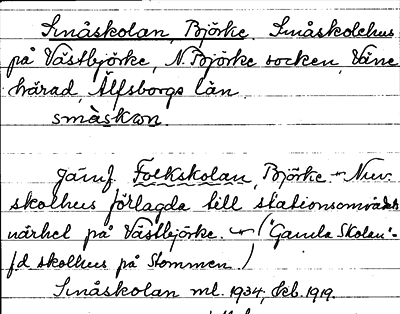 Småskolan, Björke. Småskolehus
på Västbjörke, N. Björke socken, Väne
härad, Älfsborgs län.
småskon.
Jämf. Folkskolan, Björke. – Nuv.
skolhus förlagda till stationsområdet
närhel på Västbjörke. – ("Gamla Skolan" -
f.d skolhus på Stommen)
Småskolan ml. 1934, Ekb. 1919.